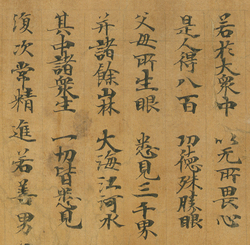 若於大衆中 以无所畏心
是人得八百 功德殊勝眼
父母所生眼 悉見三千界
并諸餘山林 大海江河水
其中諸衆生 一切皆悉見
復次常精進若善男